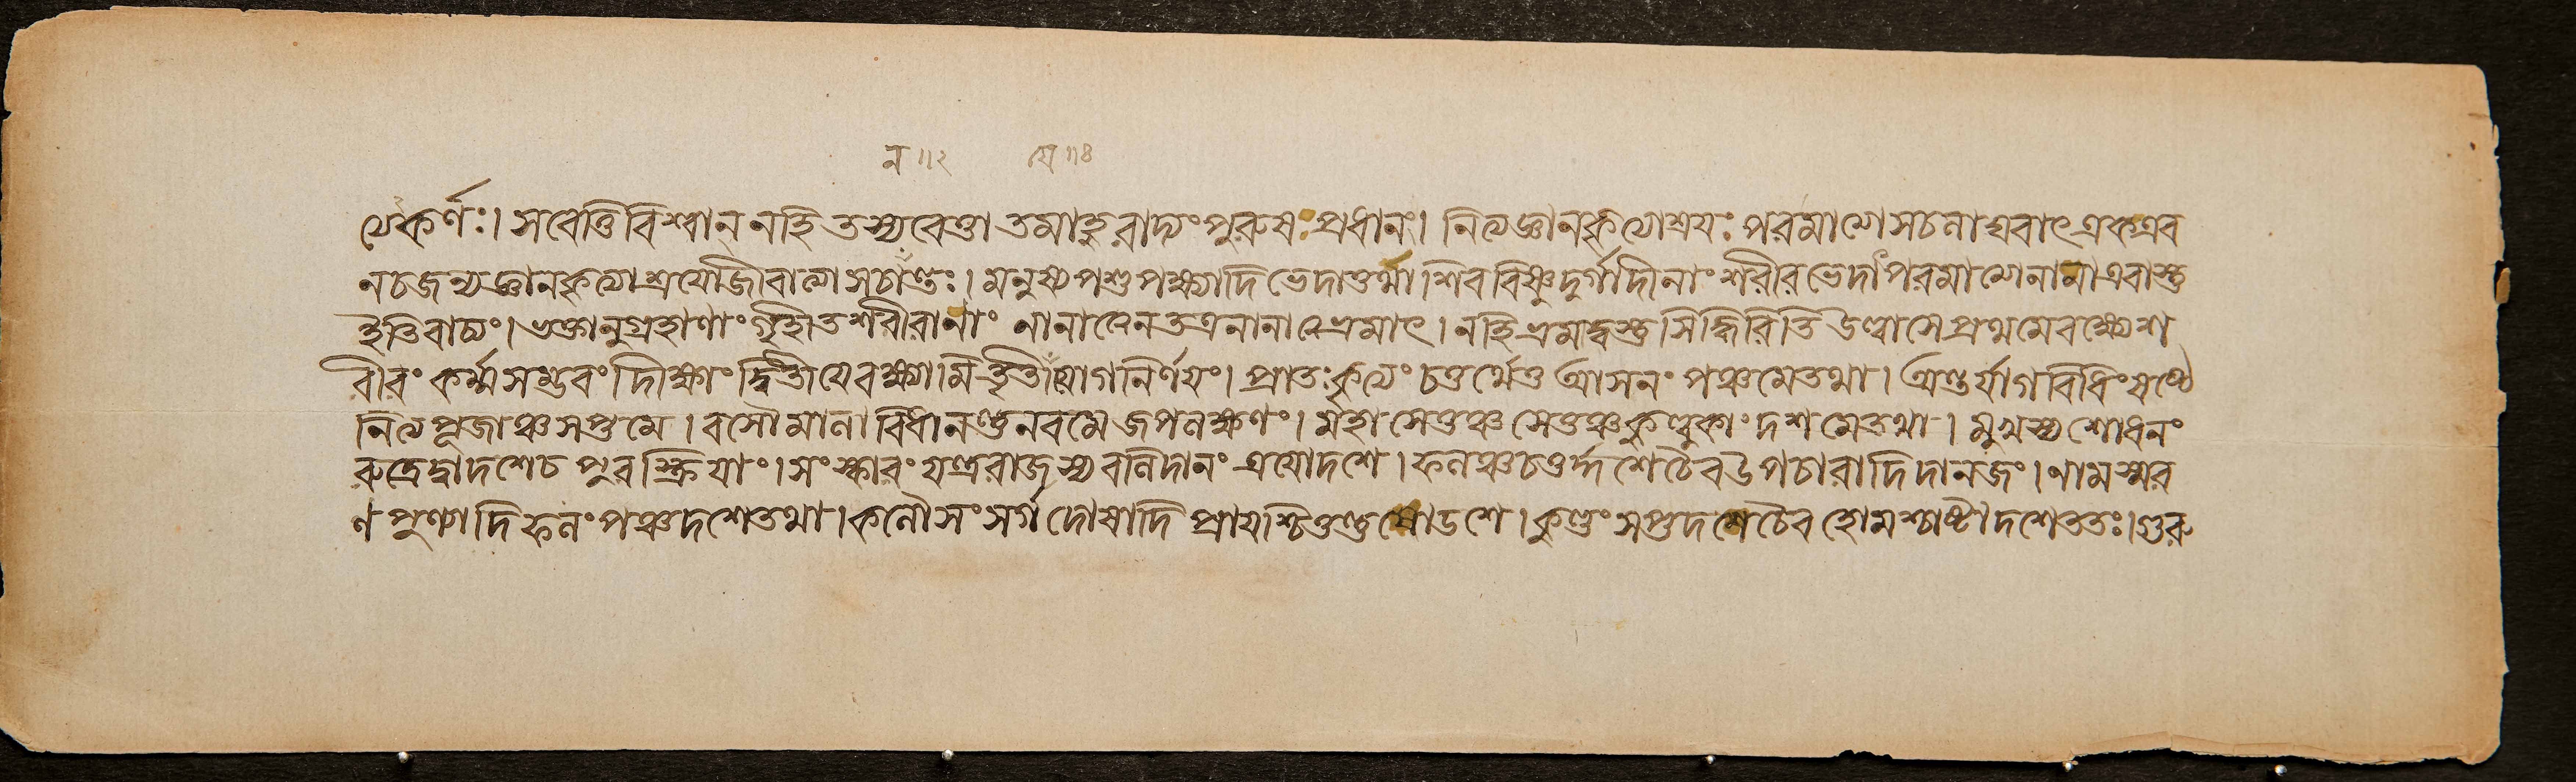 ন॥২ যে॥৪
থেকর্ণঃ। সবেত্তি বিশ্বান্ নহি তস্য বেত্তা তমাহুরাদ্যং পুরুষং প্রধানং। নিত্যজ্ঞানকৃত্যাশ্রয়ঃ পরমাত্মা সচনাদ্যবাৎ একএব
নচজন্যজ্ঞানকৃত্যাশ্রয়োজীবাত্মা সচান্তঃ। মনুষ্যপশুপক্ষ্যাদি ভেদাত্তর্থা। শিববিষ্ণুদুর্গাদীনাং শরীরভেদাৎপরমাত্মনো নানা এবাস্তু
ইতি বাচ্যং। ভক্তানুগ্রহাণাং গৃহীত শরীরানাং নানাত্বেন তত্র নানাত্বভ্রমাৎ। নহি ভ্রমাদ্বস্তুসিদ্ধিরিতি উল্লাসে প্রথমে বক্ষ্যে শ
রীরং কর্ম্মসম্ভবং দীক্ষাং দ্বিতীয়ে বক্ষ্যামি তৃতীয়ে যোগনির্ণয়ং। প্রাতঃকৃত্যং চতুর্থেতু আসনং পঞ্চমে তথা। অন্তর্যাগবিধিং ষষ্ঠে
নিত্যপূজাঞ্চ সপ্তমে। বসৌ মালাবিধানন্তু নবমে জপলক্ষণং। মহাসেতুঞ্চ সেতুঞ্চ কুল্লুকাং দশমে তথা। মুখস্য শোধনং
রুদ্রে দ্বাদশেচ পুরস্ক্রিয়াং। সংস্কারং যন্ত্ররাজস্য বলিদানং ত্রয়োদশে। ফলঞ্চ চতুর্দ্দশে চৈব উপচারাদি দানজং। নামস্মর
ণ পুণ্যাদি ফলং পঞ্চদশে তথা। কলৌ সংসর্গদোষাদি প্রায়শ্চিত্তন্তু ষোডশে। কুণ্ডং সপ্তদশে চৈব হোমশ্চাষ্টাদশে ততঃ। গুরু